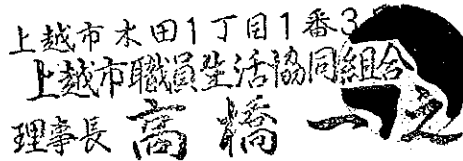 上越市木田1丁目1番3
上越市職員生活協同組合
理事長 高橋一之